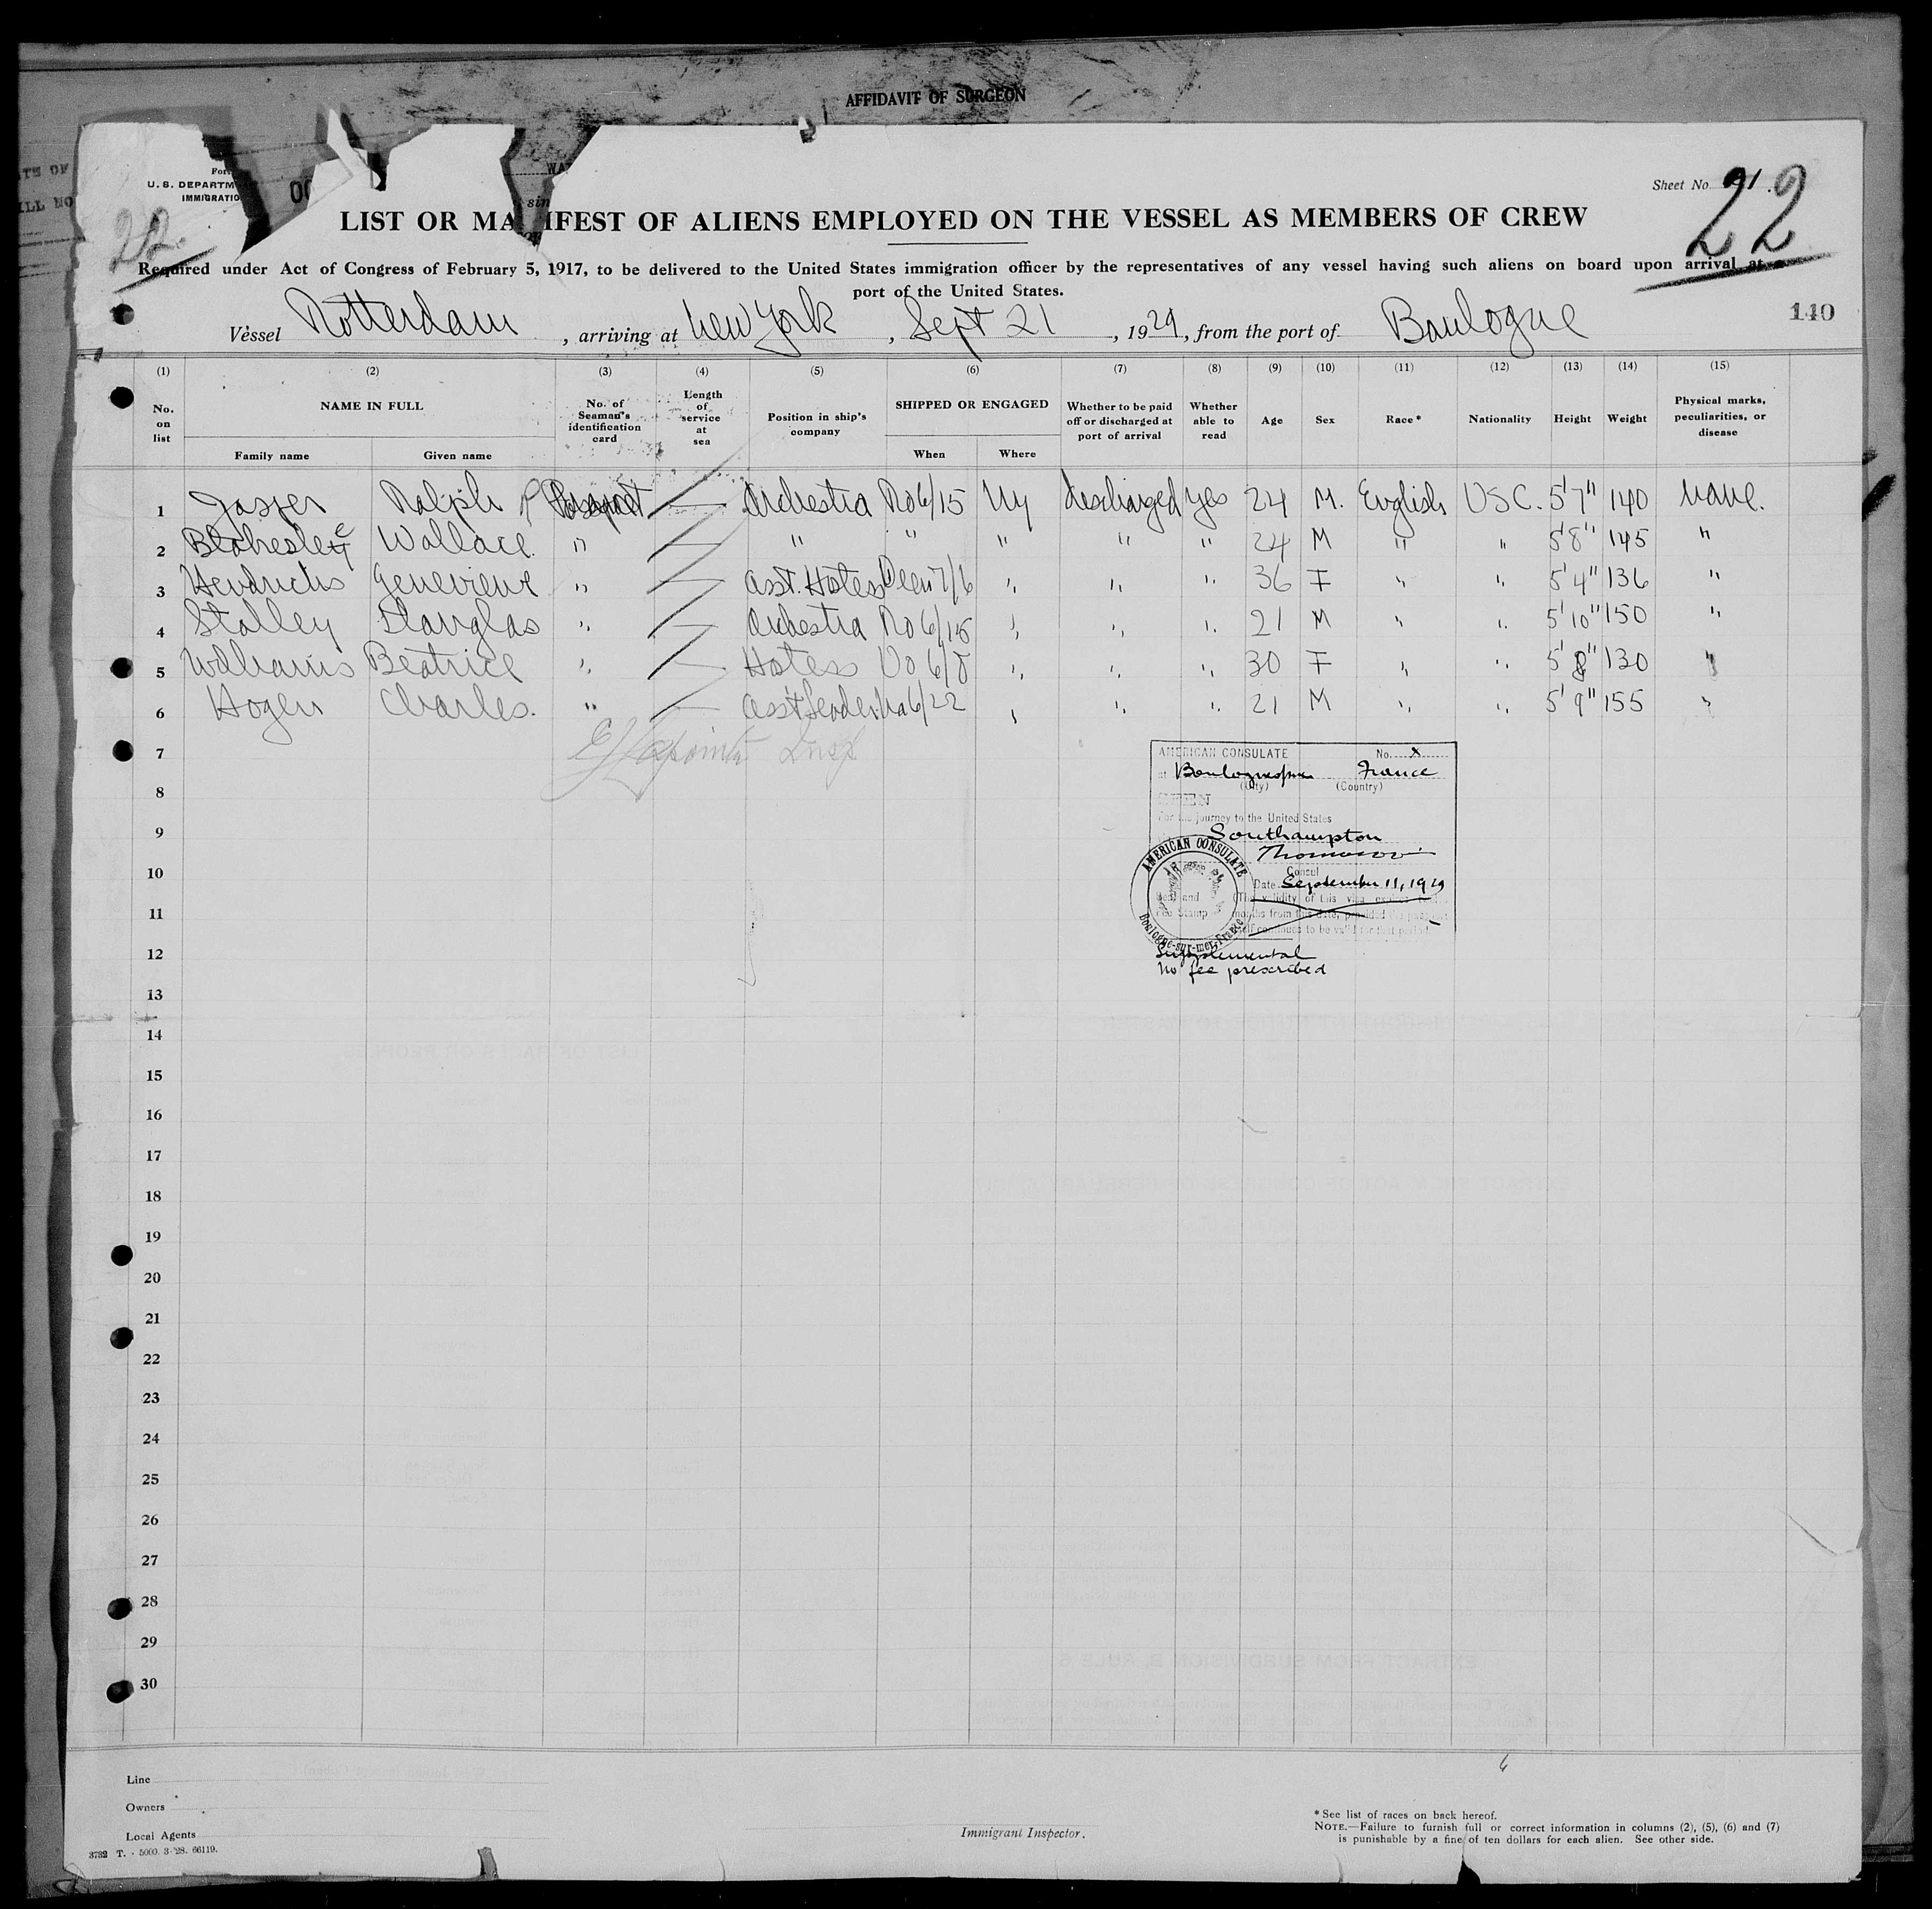 AFFIDAVIT OF SURGEON
U. S. DEPARTM
IMMIGRATIO
Sheet No. 21.
22
22.
LIST OR MANIFEST OF ALIENS EMPLOYED ON THE VESSEL AS MEMBERS OF CREW
Required under Act of Congress of February 5, 1917, to be delivered to the United States immigration officer by the representatives of any vessel having such aliens on board upon arrival at a
port of the United States.
140
Vessel Rotterdam, arriving at New York, Sept 21, 1929, from the port of Boulogne
(1) (2) (3) (4) (5) (6) (7) (8) (9) (10) (11) (12) (13) (14) (15)
No. on list NAME IN FULL No. of Seaman's identification card Length of service at sea Position in ship's company SHIPPED OR ENGAGED Whether to be paid off or discharged at port of arrival Whether able to read Age Sex Race* Nationality Height Weight Physical marks, peculiarities, or disease
Family name Given name When Where
1 Ralph Passport — Orchestra 6/15 Ny discharged yes 24 M. English USC. 5'7" 140 None.
2 Blakeslee Wallace " " " " " " 24 M " " 5'8" 145 "
3 Hendricks Genevieve " — Asst. Hotess 7/6 " " " 36 F " " 5'4" 136 "
4 Stalley Douglas " — Orchestra 6/15 " " " 21 M " " 5'10" 150 "
5 Williams Beatrice " — Hotess 6/8 " " " 30 F " " 5'8" 130 "
6 Hogen Charles. " — Asst Leader 6/22 " " " 21 M " " 5'9" 155 "
7 Insp
8
9
10
11
12
13
14
15
16
17
18
19
20
21
22
23
24
25
26
27
28
29
30
AMERICAN CONSULATE No. x
at Boulogne s/mer France
(City) (Country)
SEEN
For the journey to the United States
Southampton
Consul
Date September 11, 1929
Seal and Fee Stamp
(The validity of this visa expires
months from this date, provided the passport
itself continues to be valid for that period.
AMERICAN CONSULATE
Boulogne-sur-mer, France
Supplemental
No fee prescribed
Line
Owners
Local Agents
3732 T. - 5000. 3-'28. 66119.
Immigrant Inspector.
* See list of races on back hereof.
NOTE.—Failure to furnish full or correct information in columns (2), (5), (6) and (7)
is punishable by a fine of ten dollars for each alien. See other side.